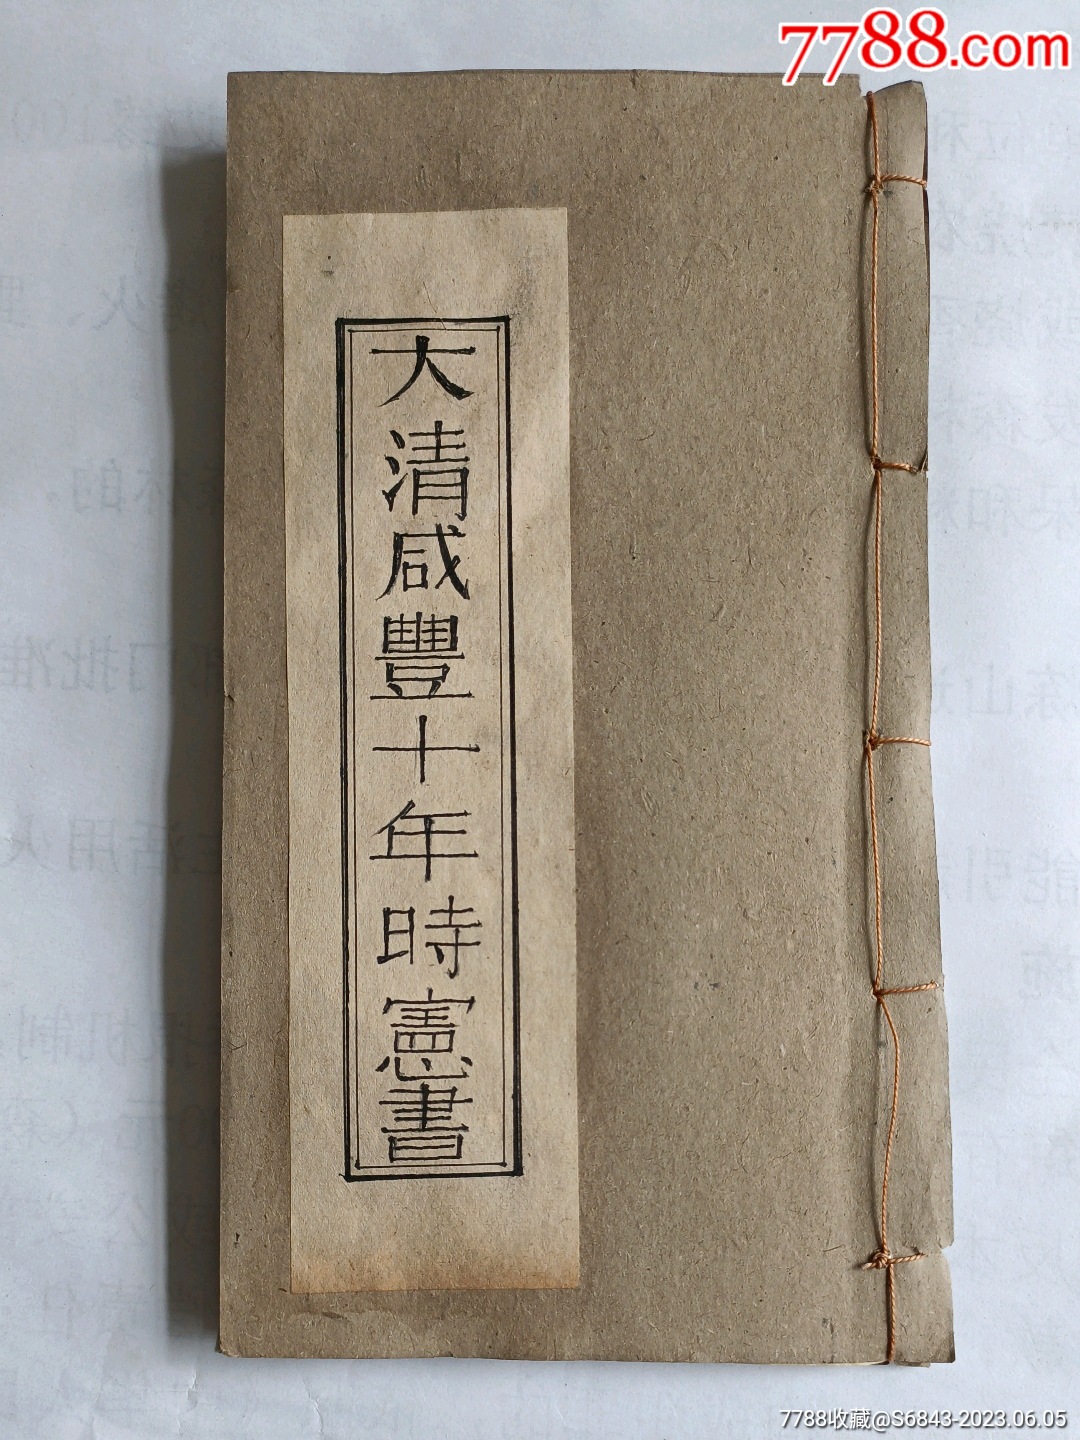 7788.com
大清咸豐十年時憲書
7788收藏@S6843-2023.06.05